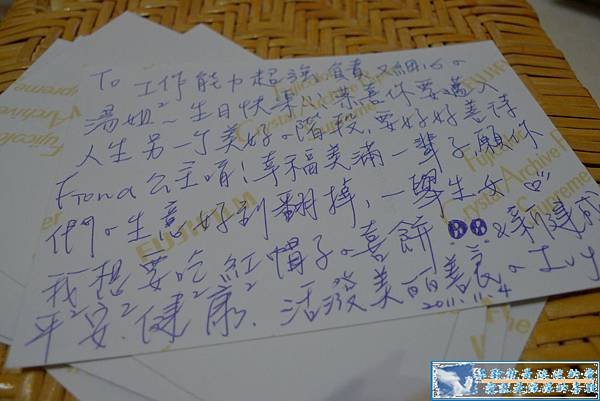 To 工作能力超強負責又細心的
湯姐~生日快樂!恭喜你要邁入
人生另一個美好的階段,要好好善待
Fiona公主唷!幸福美滿一輩子願你
們。生意好到翻掉,一舉生女♡
我想要吃紅帽子的喜餅 &
平²安²健²康²活發美麗善良。
2011.11.4
FUJIFILM
Fujicolor
Crystal Archive
Supreme